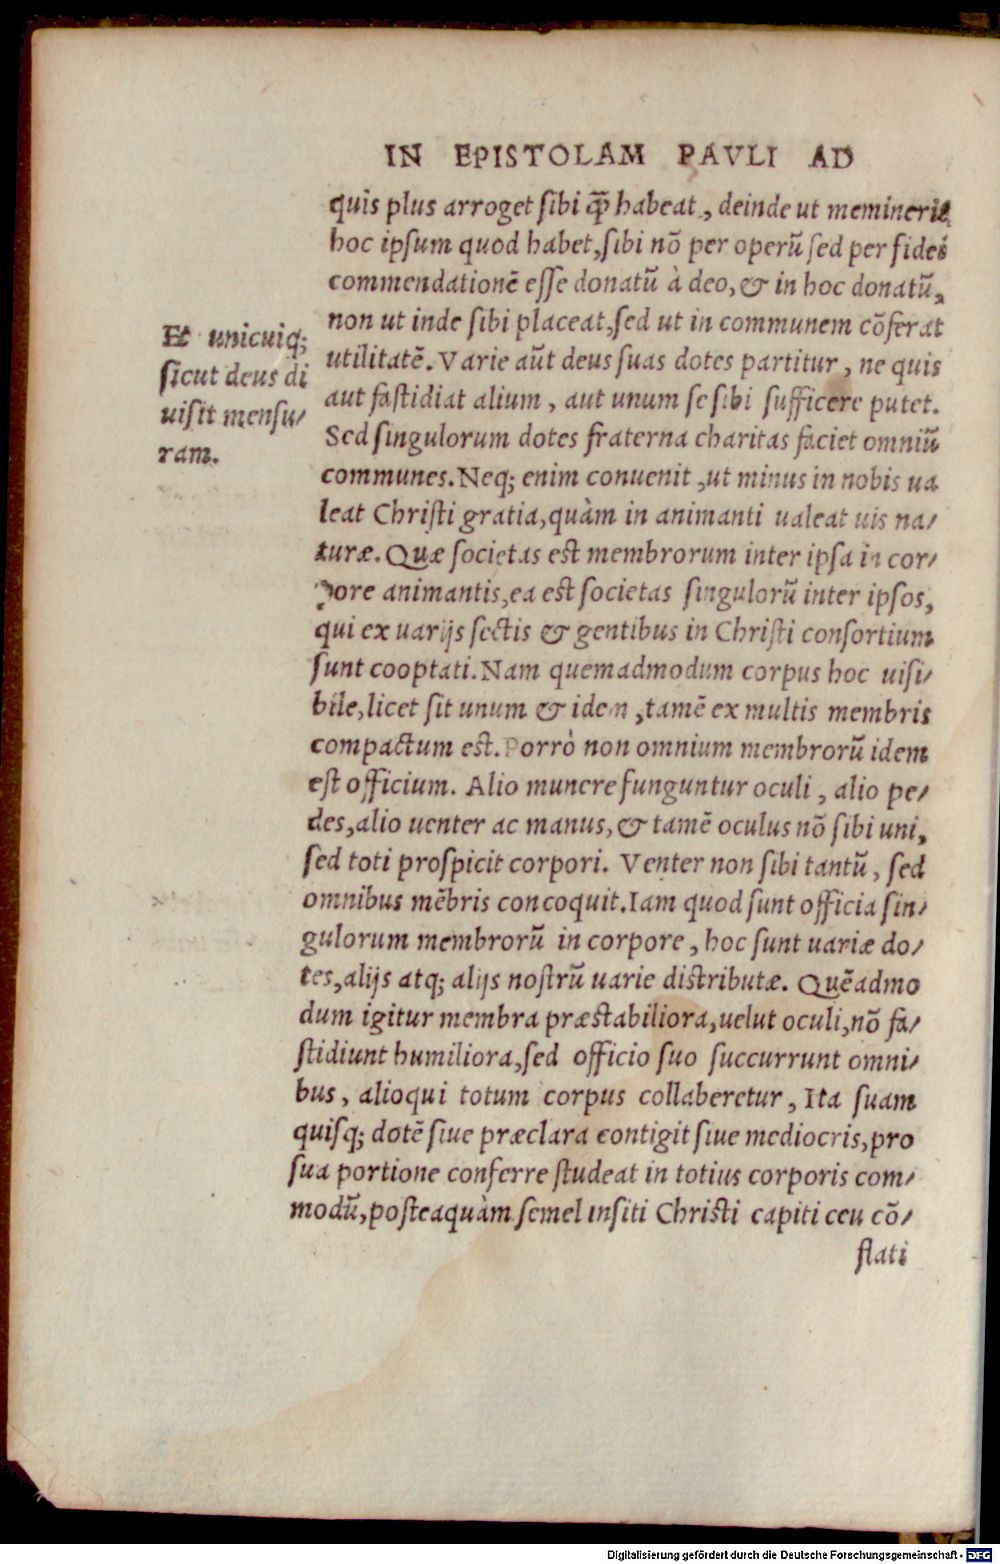 IN EPISTOLAM PAVLI AD
quis plus arroget sibi q̃ habeat, deinde ut meminerit
hoc ipsum quod habet, sibi nõ per operũ sed per fidei
commendationẽ esse donatũ à deo, & in hoc donatũ,
non ut inde sibi placeat, sed ut in communem cõferat
utilitatẽ. Varie aũt deus suas dotes partitur, ne quis
aut fastidiat alium, aut unum se sibi sufficere putet.
Sed singulorum dotes fraterna charitas faciet omniũ
communes. Neq; enim conuenit, ut minus in nobis ua
leat Christi gratia, quàm in animanti ualeat uis na/
turæ. Quæ societas est membrorum inter ipsa in cor/
pore animantis, ea est societas singulorũ inter ipsos,
qui ex uarijs sectis & gentibus in Christi consortium
sunt cooptati. Nam quemadmodum corpus hoc uisi/
bile, licet sit unum & idem, tamẽ ex multis membris
compactum est. Porrò non omnium membrorũ idem
est officium. Alio munere funguntur oculi, alio pe/
des, alio uenter ac manus, & tamẽ oculus nõ sibi uni,
sed toti prospicit corpori. Venter non sibi tantũ, sed
omnibus mẽbris concoquit. Iam quod sunt officia sin/
gulorum membrorũ in corpore, hoc sunt uariæ do/
tes, alijs atq; alijs nostrũ uarie distributæ. Quẽadmo
dum igitur membra præstabiliora, uelut oculi, nõ fa/
stidiunt humiliora, sed officio suo succurrunt omni/
bus, alioqui totum corpus collaberetur, Ita suam
quisq; dotẽ siue præclara contigit siue mediocris, pro
sua portione conferre studeat in totius corporis com/
modũ, posteaquàm semel insiti Christi capiti ceu cõ/
flati
Et unicuiq;
sicut deus di
uisit mensu/
ram.
Digitalisierung gefördert durch die Deutsche Forschungsgemeinschaft - DFG